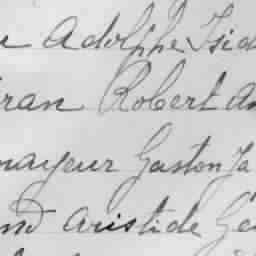 Adolphe Isid
ran Robert A
mayeur Gaston Ja
nd Aristide Ge